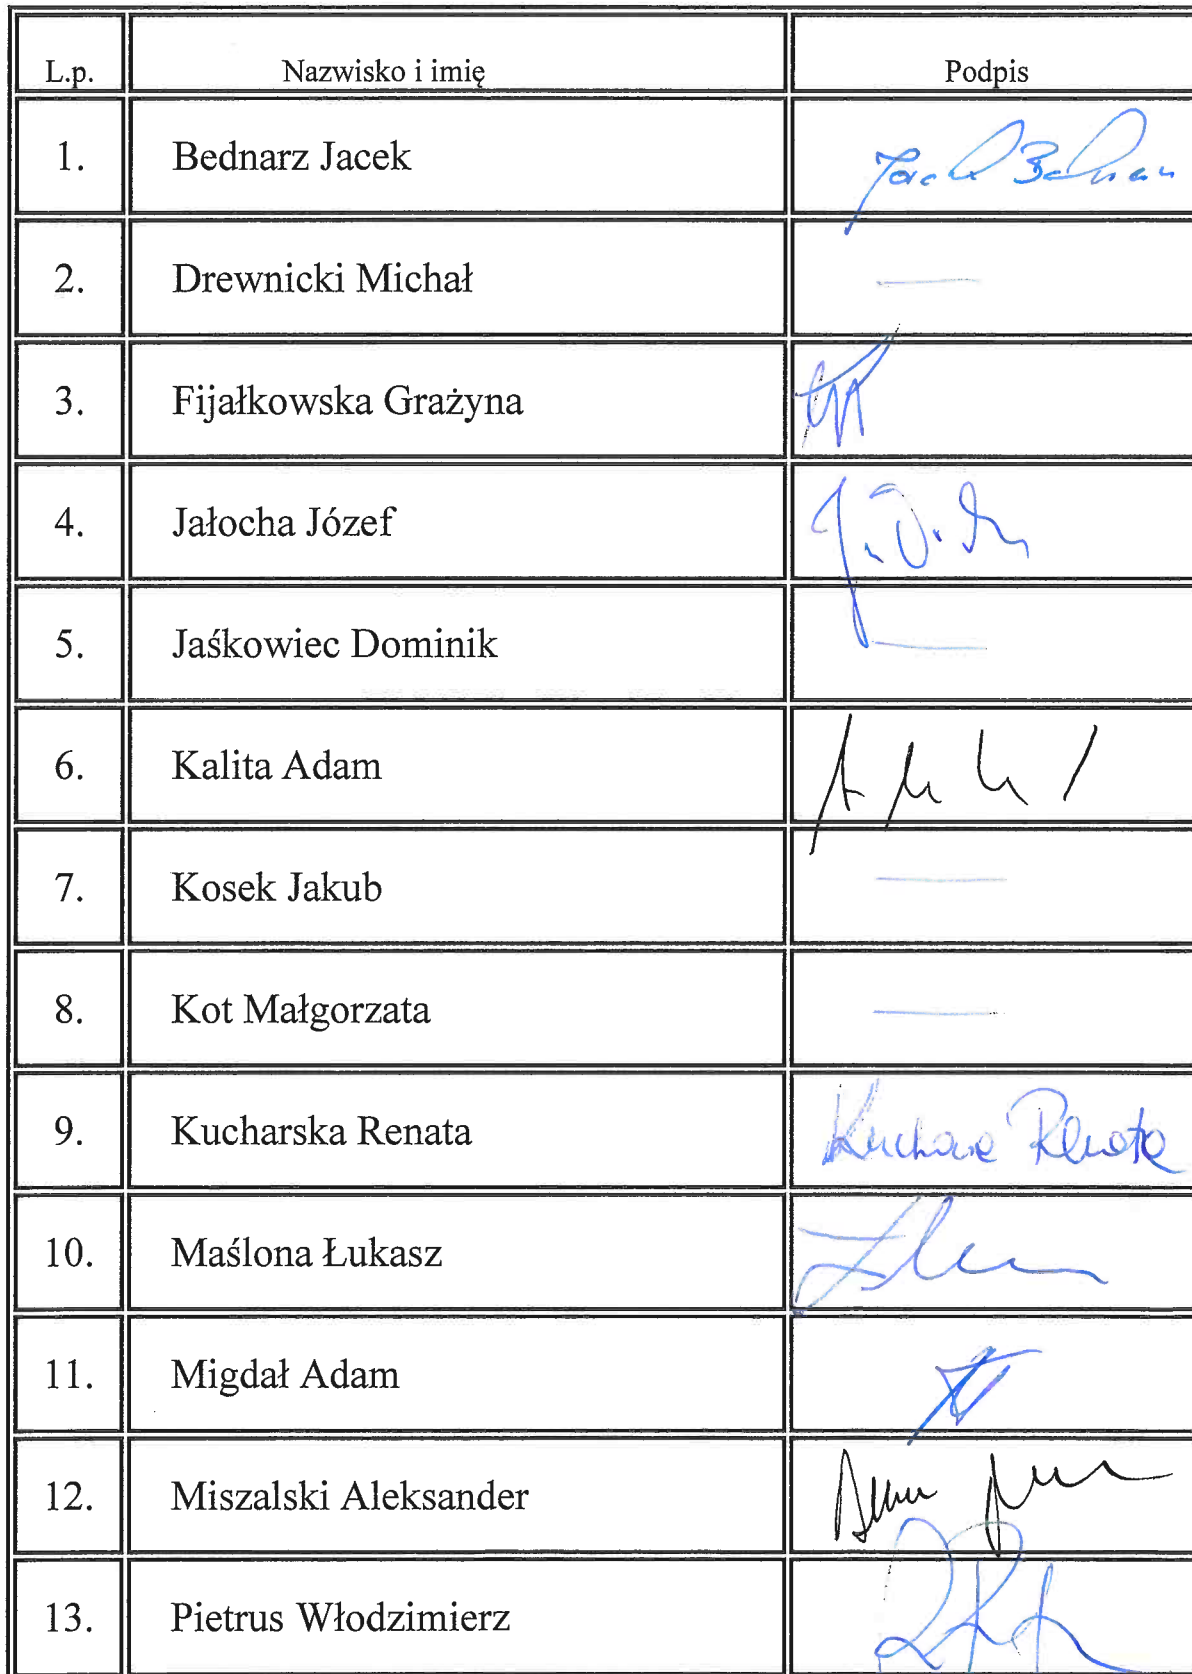 L.p. Nazwisko i imię Podpis
1. Bednarz Jacek
2. Drewnicki Michał —
3. Fijałkowska Grażyna
4. Jałocha Józef
5. Jaśkowiec Dominik —
6. Kalita Adam
7. Kosek Jakub —
8. Kot Małgorzata —
9. Kucharska Renata Renata
10. Maślona Łukasz
11. Migdał Adam
12. Miszalski Aleksander
13. Pietrus Włodzimierz